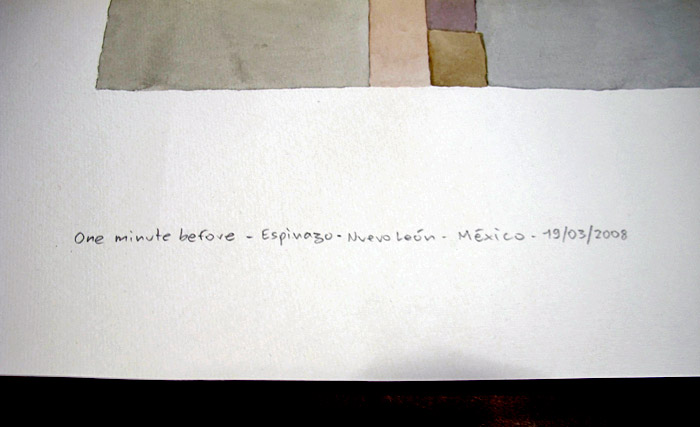 One minute before - Espinazo - Nuevo León - México - 19/03/2008